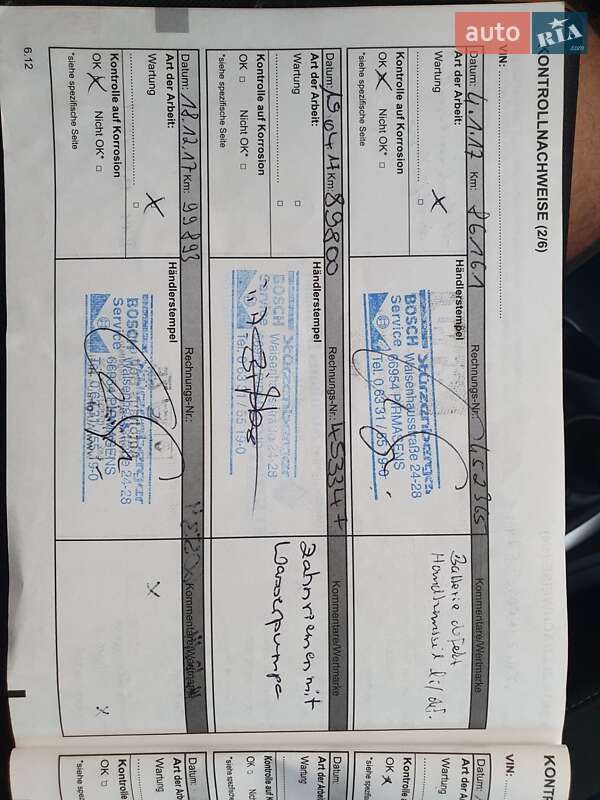 auto RIA .com
KONTROLLNACHWEISE (2/6)
VIN:
Datum: 4.1.17 Km: 86161
Art der Arbeit:
Wartung X
Kontrolle auf Korrosion
OK X Nicht OK* □
*siehe spezifische Seite
Händlerstempel
Stürzenberger
BOSCH Waisenhausstraße 24-28
Service 66954 PIRMASENS
Tel. 0 63 31 / 55 19-0
Rechnungs-Nr.:
Kommentare/Wertmarke
Batterie defekt
Datum: 19.04.17 Km: 89800
Art der Arbeit:
Wartung □
Kontrolle auf Korrosion
OK □ Nicht OK* □
*siehe spezifische Seite
Händlerstempel
Stürzenberger
BOSCH Waisenhausstraße 24-28
Service
Rechnungs-Nr.: 453347
Kommentare/Wertmarke
Zahnriemen mit
Wasserpumpe
Datum: 18.12.17 Km: 99893
Art der Arbeit:
Wartung X
Kontrolle auf Korrosion
OK X Nicht OK* □
*siehe spezifische Seite
Händlerstempel
BOSCH
Service 66954 PIRMASENS
Rechnungs-Nr.:
Kommentare/Wertmarke
X
X
6.12
KONT
VIN:
Datum:
Art der Arbeit
Wartung
Kontrolle
OK X
*siehe spezi
Datum:
Art der Arbe
Wartung
Kontrolle auf K
OK □ Nicht
*siehe spezifische
Datum:
Art der Arb
Wartung
Kontrolle
OK □
*siehe spezi